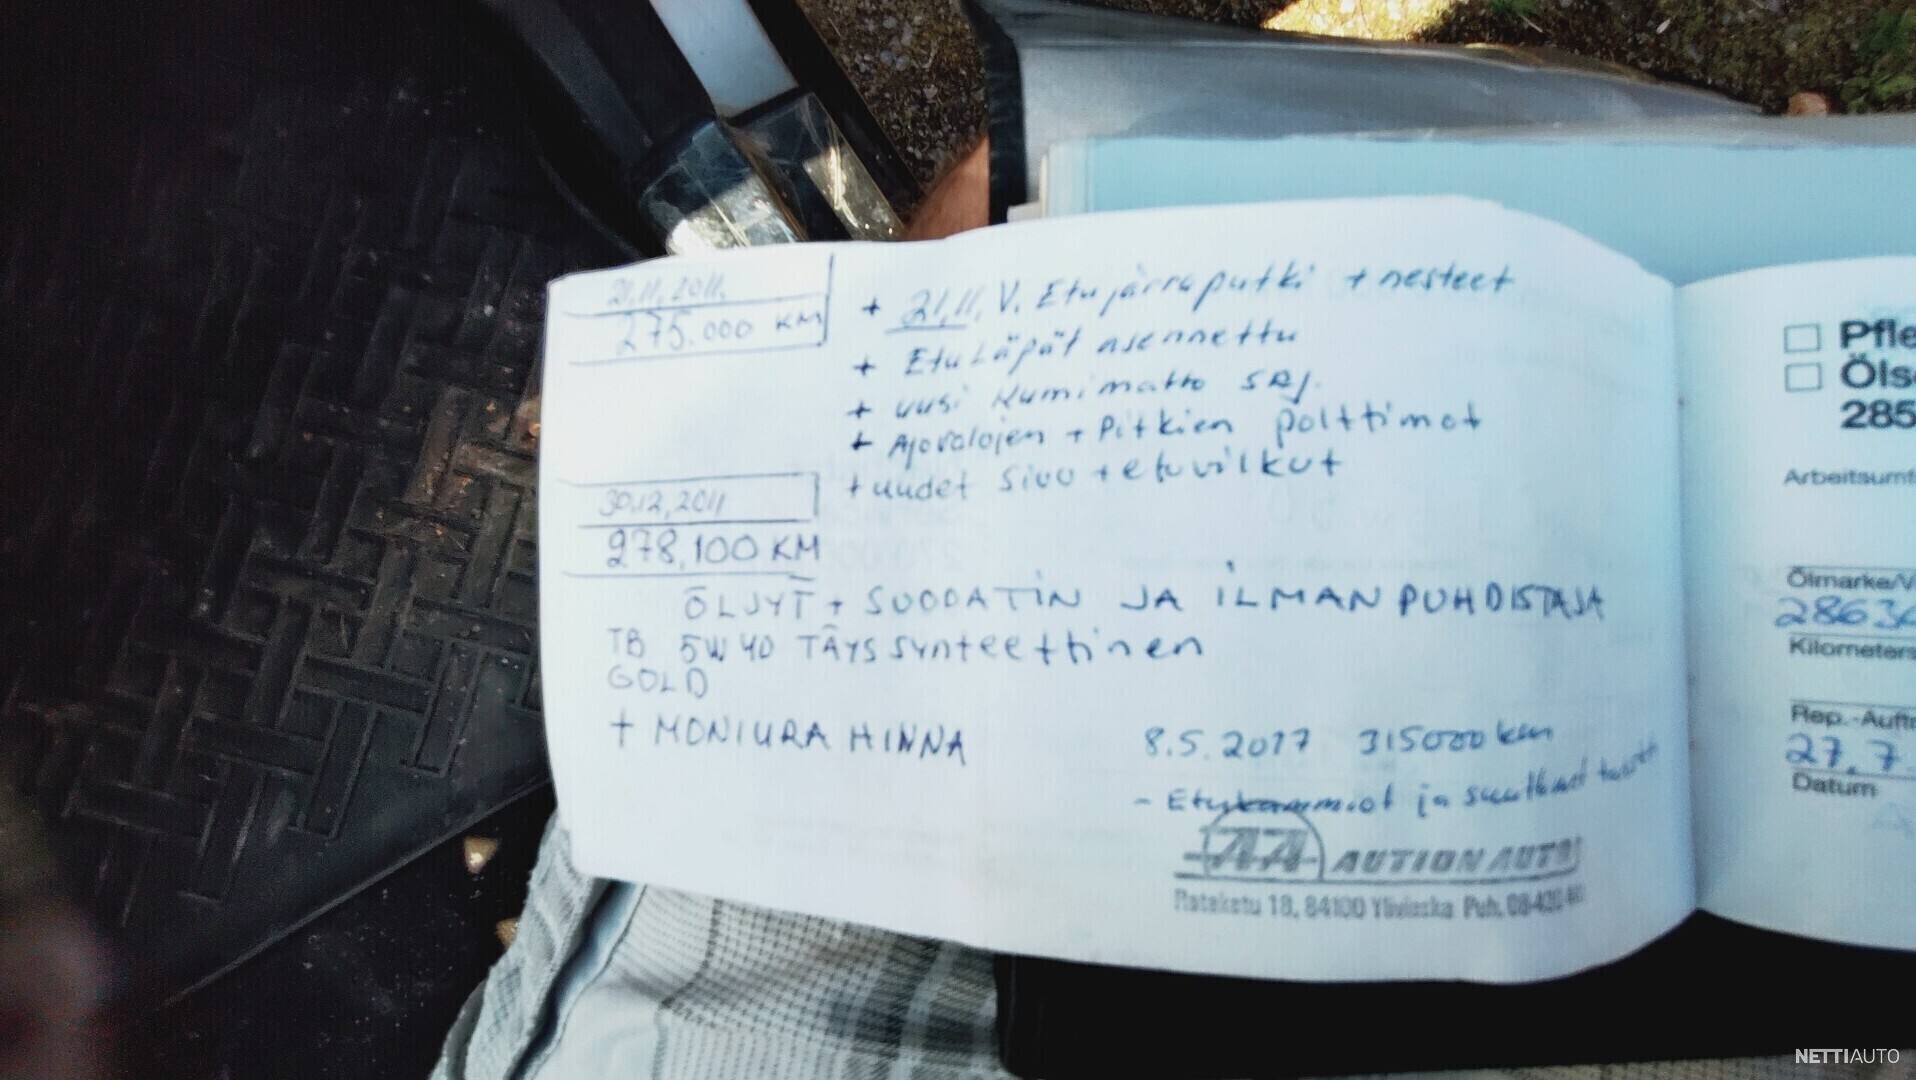 21.11.2011.
275.000 KM
+ 21.11. V. Etujarruputki + nesteet
+ Etu Läpät asennettu
+ uusi Kumimatto SRJ.
+ Ajovalojen + Pitkien polttimot
+ uudet sivu + etuvilkut
30.12.2011
278,100 KM
ÖLJYT + SUODATIN JA ILMANPUHDISTAJA
TB 5W40 TÄYSsynteettinen
GOLD
+ MONIURA HINNA
8.5.2017 315000 km
- Etukammiot ja suuttimet
AA AUTION AUTO
Rataketu 18, 84100 Ylivieska Puh. 08-420
Pfle
Ölse
285
Arbeitsumf
Ölmarke/V
28636
Kilometers
Rep.-Auftr
27.7
Datum
NETTIAUTO